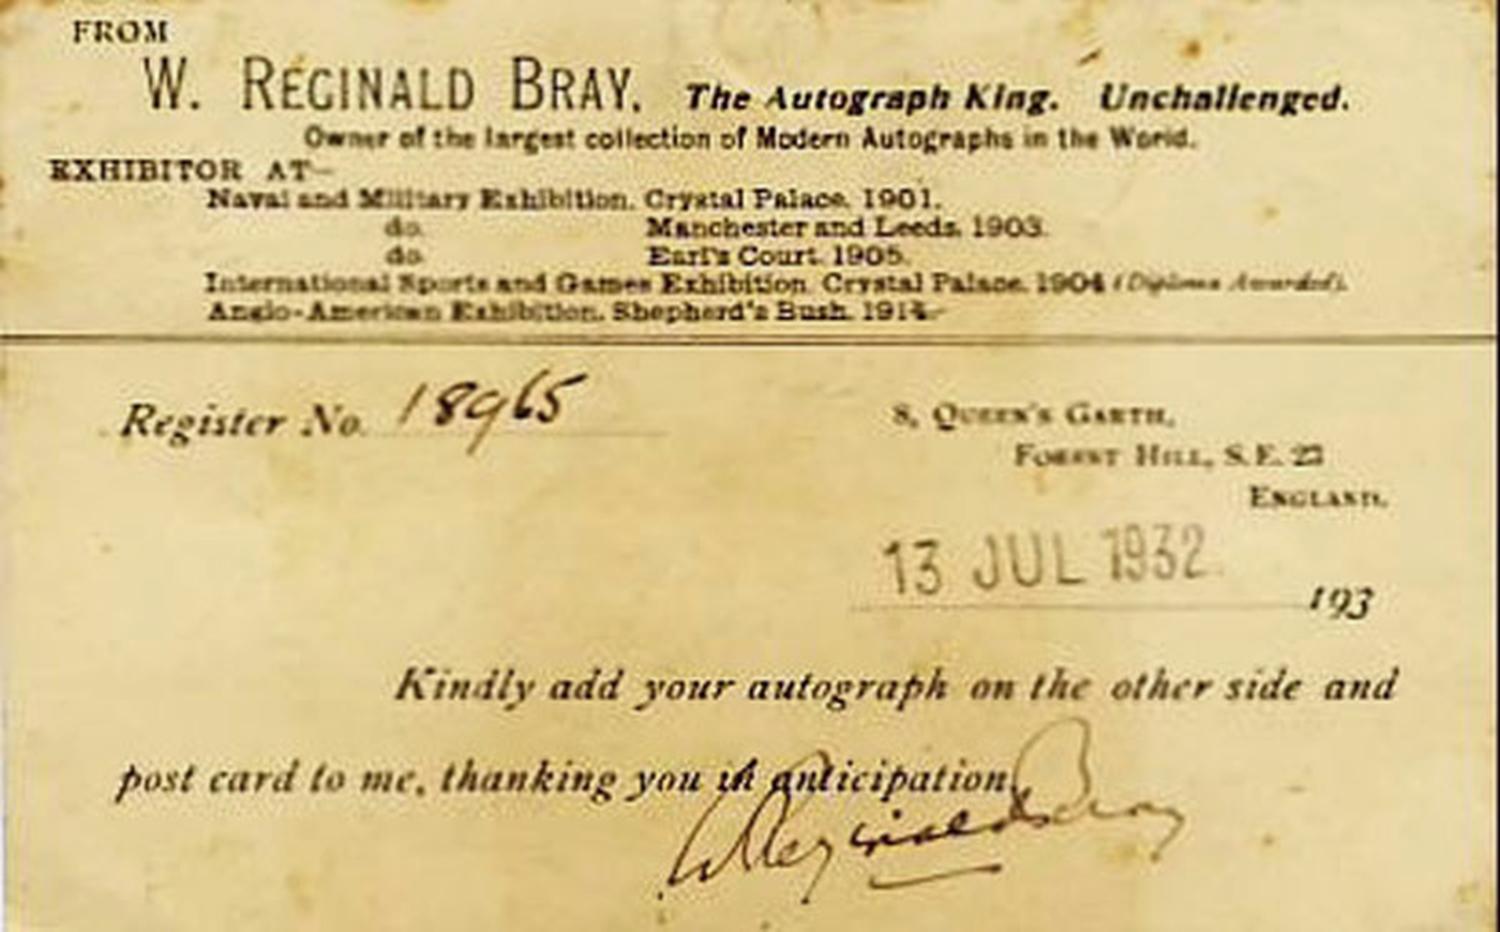 FROM
W. REGINALD BRAY. The Autograph King. Unchallenged.
Owner of the largest collection of Modern Autographs in the World.
EXHIBITOR AT—
Naval and Military Exhibition. Crystal Palace. 1901.
do. Manchester and Leeds. 1903.
do. Earl's Court. 1905.
International Sports and Games Exhibition. Crystal Palace. 1904 (Diploma Awarded).
Anglo-American Exhibition. Shepherd's Bush. 1914.
Register No. 18965
8, QUEEN'S GARTH,
FOREST HILL, S.E. 23
ENGLAND.
13 JUL 1932
193
Kindly add your autograph on the other side and
post card to me, thanking you in anticipation.
W Reginald Bray